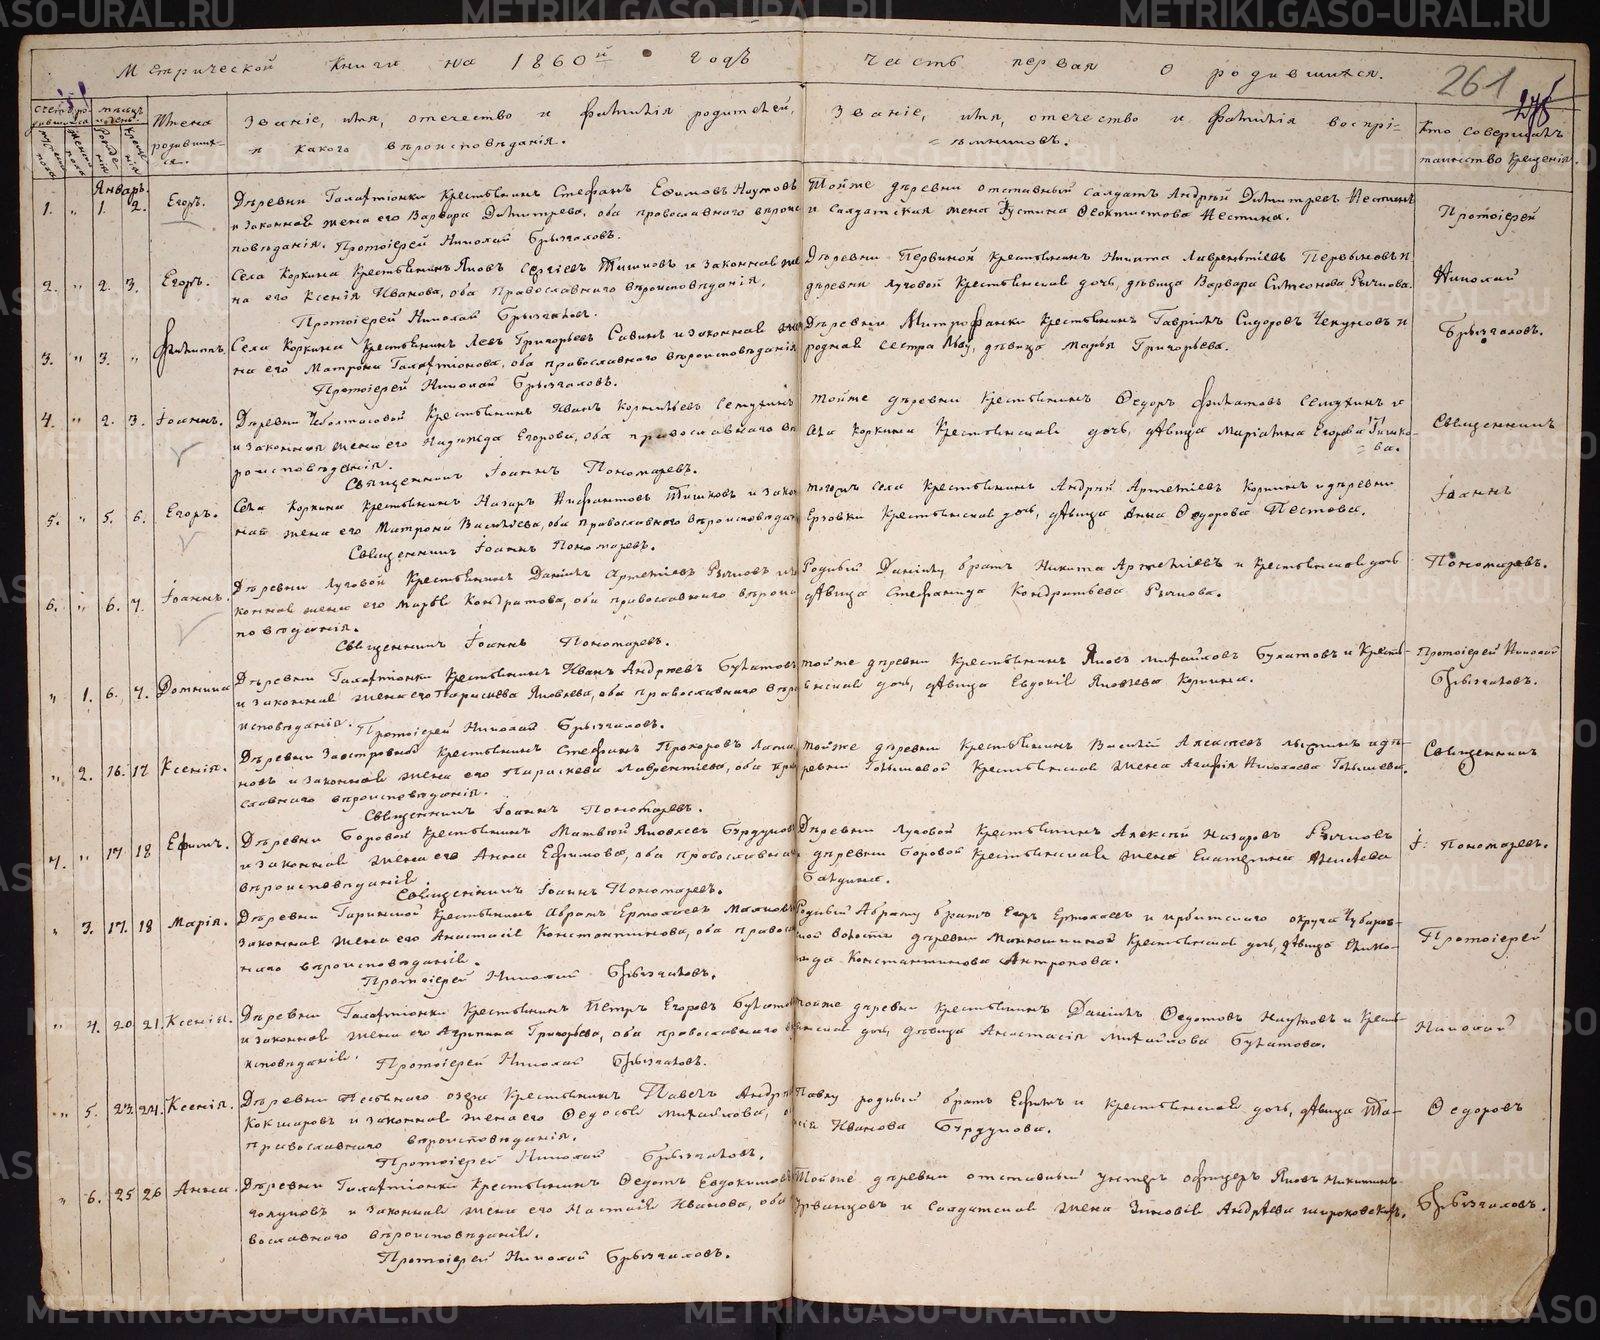 METRIKI.GASO-URAL.RU
Метрической книги на 1860й годъ часть первая о родившихся.
261
Имена родивших-ся.
Званіе, имя, отечество и фамилія родителей, и какого вѣроисповѣданія.
Званіе, имя, отечество и фамилія воспрі-
=емниковъ.
Кто совершалъ таинство крещенія.
Январь.
1. " 1. 2. Егоръ. Деревни Галактіонки крестьянинъ Стефанъ Ефимовъ Наумовъ
и законная жена его Варвара Димитріева, оба православнаго вѣроис
повѣданія. Протоіерей Николай Брызгаловъ.
Тойже деревни отставный солдатъ Андрей Димитріевъ
и солдатская жена Устина Ѳеоктистова
Протоіерей
2. " 2. 3. Егоръ. Села Коркина крестьянинъ Яковъ Сергіевъ Тишковъ и законная же
на его Ксенія Иванова, оба православнаго вѣроисповѣданія.
Протоіерей Николай Брызгаловъ.
Деревни Первиной крестьянинъ Никита Лаврентіевъ Первыновъ и
деревни Луговой крестьянская дочь, дѣвица Варвара Симеонова Рычкова.
Николай
3. " 3. " Филиппъ. Села Коркина крестьянинъ Левъ Григорьевъ Савинъ и законная же
на его Матрона Галактіонова, оба православнаго вѣроисповѣданія
Протоіерей Николай Брызгаловъ.
Деревни Митрофанки крестьянинъ Гавріилъ Сидоровъ Чекуновъ и
родная сестра Льву, дѣвица Марья Григорьева.
Брызгаловъ.
4. " 2. 3. Іоаннъ. Деревни крестьянинъ Иванъ Корнильевъ Семухинъ
и законная жена его Надежда Егорова, оба православнаго вѣ
роисповѣданія.
Священникъ Іоаннъ Пономаревъ.
Тойже деревни крестьянинъ Ѳедоръ Филатовъ Семухинъ и
села Коркина крестьянская дочь, дѣвица Маріамна Егорова Тишко-
=ва.
Священникъ
5. " 5. 6. Егоръ. Села Коркина крестьянинъ Назаръ Тишковъ и закон
ная жена его Матрона Васильева, оба православнаго вѣроисповѣдан
Священникъ Іоаннъ Пономаревъ.
тогожъ села крестьянинъ Андрей Артеміевъ Коркинъ и деревни
Ерзовки крестьянская дочь, дѣвица Анна Ѳедорова Пестова.
Іоаннъ
6. " 6. 7. Іоаннъ. Деревни Луговой крестьянинъ Даніилъ Артеміевъ Рычковъ и за
конная жена его Марья Кондратова, оба православнаго вѣроис
повѣданія.
Священникъ Іоаннъ Пономаревъ.
Родный Даніилу братъ Никита Артеміевъ и крестьянская дочь
дѣвица Стефанида Кондратьева Рычкова.
Пономаревъ.
" 1. 6. 7. Домника Деревни Галактіонки крестьянинъ Иванъ Андреевъ Булатовъ
и законная жена его Параскева Яковлева, оба православнаго вѣро
исповѣданія. Протоіерей Николай Брызгаловъ.
тойже деревни крестьянинъ Яковъ Михайловъ Булатовъ и кресть-
янская дочь, дѣвица Евдокія Яковлева
Протоіерей Николай
Брызгаловъ.
" 2. 16. 17 Ксенія. Деревни Заостровной крестьянинъ Стефанъ Прохоровъ
новъ и законная жена его Параскева Лаврентіева, оба пра
славнаго вѣроисповѣданія.
Священникъ Іоаннъ Пономаревъ.
тойже деревни крестьянинъ Василій Алексѣевъ и де-
ревни крестьянская жена Агафія Николаева
Священникъ
7. " 17 18 Ефимъ. Деревни Боровой крестьянинъ Матвей Яковлевъ Бердуковъ
и законная жена его Анна Ефимова, оба православнаг
вѣроисповѣданія
Священникъ Іоаннъ Пономаревъ.
Деревни Луговой крестьянинъ Алексѣй Назаровъ Рычковъ
деревни Боровой крестьянская жена Екатерина
І: Пономаревъ.
" 3. 17. 18 Марія. Деревни Гаринской крестьянинъ Абрамъ Ермолаевъ
законная жена его Анастасія Константинова, оба правос
наго вѣроисповѣданія.
Протоіерей Николай Брызгаловъ.
Родный Абраму братъ Егоръ Ермолаевъ и Ирбитскаго округа Чубаров-
ской волости деревни крестьянская дочь, дѣвица
Константинова Антропова.
Протоіерей
" 4. 20 21. Ксенія. Деревни Галактіонки крестьянинъ Петръ Егоровъ Булатовъ
и законная жена его Агрипина Григорьева, оба православнаго вѣ
исповѣданія. Протоіерей Николай Брызгаловъ.
тойже деревни крестьянинъ Даніилъ Ѳедотовъ Наумовъ и кресть
янская дочь, дѣвица Анастасія Михайлова Булатова.
Николай
" 5. 23. 24. Ксенія. Деревни Песьянаго озера крестьянинъ Павелъ Андре
Кокшаровъ и законная жена его Ѳедосья Михайлова, о
православнаго вѣроисповѣданія.
Протоіерей Николай Брызгаловъ.
Павлу родный братъ Ефимъ и крестьянская дочь, дѣвица
Иванова Бердукова.
Ѳедоровъ
" 6. 25 26 Анна. Деревни Галактіонки крестьянинъ Ѳедотъ Евдокимовъ
и законная жена его Настасія Иванова, оба
вославнаго вѣроисповѣданія.
Протоіерей Николай Брызгаловъ.
Тойже деревни отставный унтеръ офицеръ Яковъ Никитинъ
и солдатская жена Зиновія Андреева
Брызгаловъ.